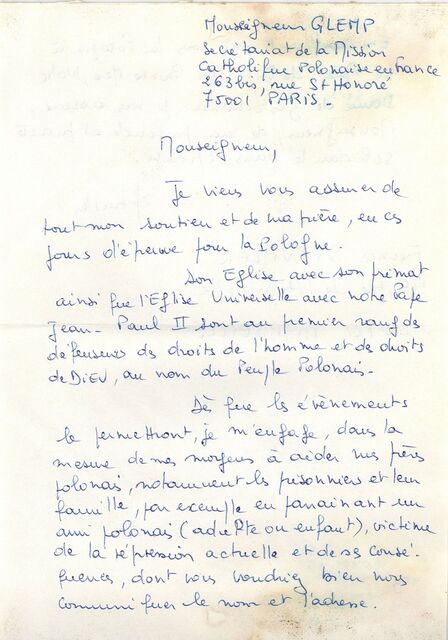 Monseigneur GLEMP
Secrétariat de la Mission
Catholique Polonaise en France
263 bis, rue St Honoré
75001 PARIS.
Monseigneur,
Je viens vous assurer de
tout mon soutien et de ma prière, en ces
jours d'épreuve pour la Pologne.
Son Eglise avec son primat
ainsi que l'Eglise Universelle avec notre Pape
Jean-Paul II sont au premier rang des
défenseurs des droits de l'homme et des droits
de DIEU, au nom du Peuple Polonais.
Dès que les évènements
le permettront, je m'engage, dans la
mesure de mes moyens à aider mes frères
polonais, notamment les prisonniers et leur
famille, par exemple en parrainant un
ami polonais (adulte ou enfant), victime
de la répression actuelle et de ses consé-
quences, dont vous voudriez bien nous
communiquer le nom et l'adresse.